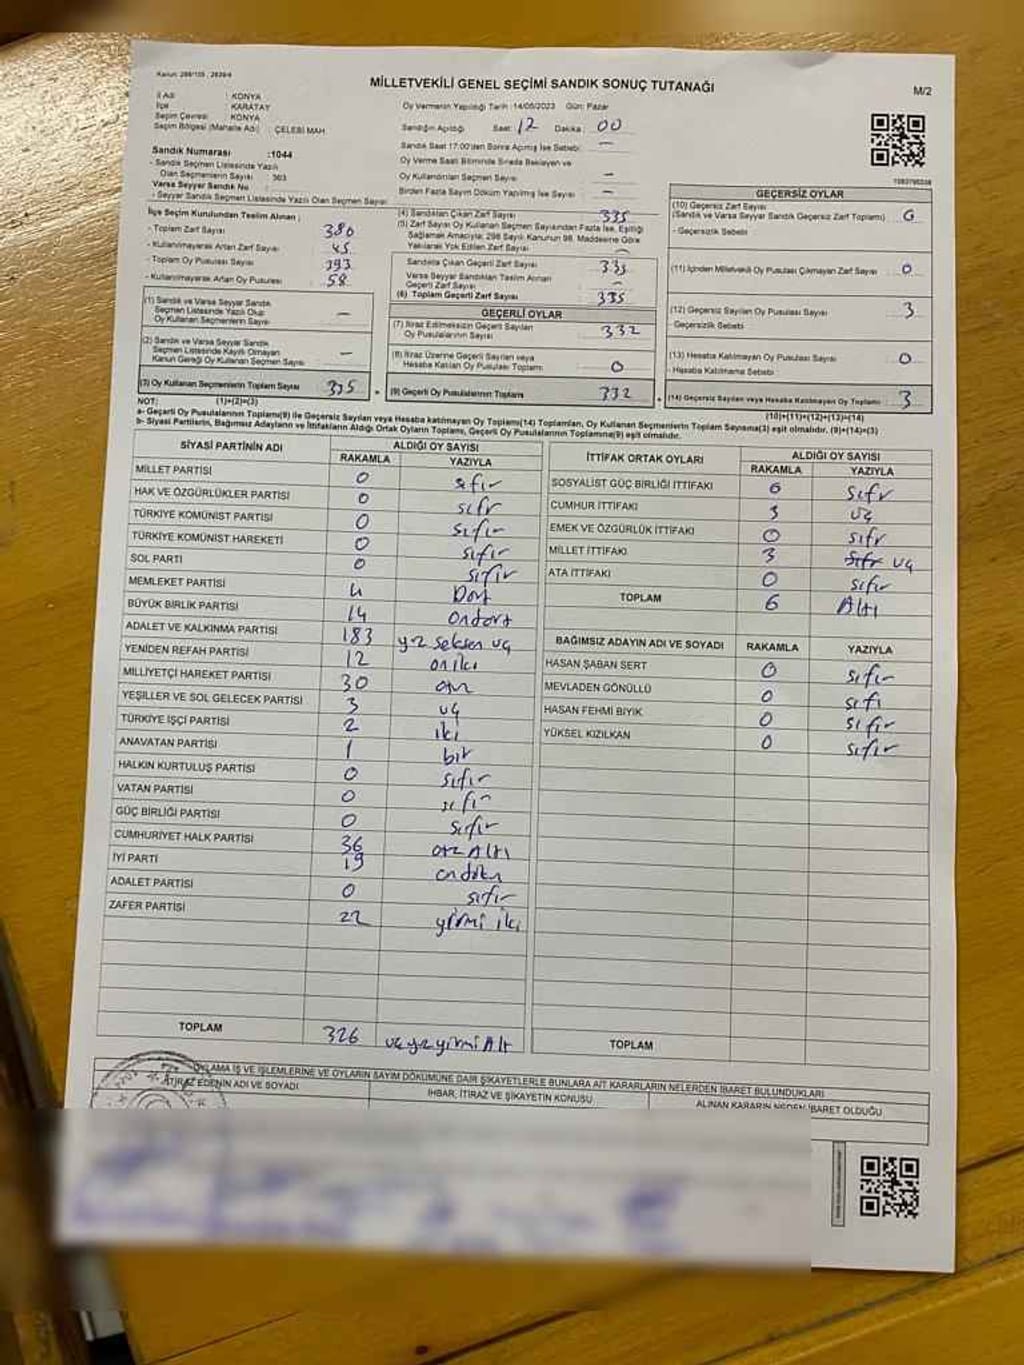 Kanun: 298/105 , 2839/4
MİLLETVEKİLİ GENEL SEÇİMİ SANDIK SONUÇ TUTANAĞI
M/2
İl Adı : KONYA
İlçe : KARATAY
Seçim Çevresi : KONYA
Seçim Bölgesi (Mahalle Adı) : ÇELEBİ MAH.
Sandık Numarası :1044
- Sandık Seçmen Listesinde Yazılı
Olan Seçmenlerin Sayısı : 363
Varsa Seyyar Sandık No :
- Seyyar Sandık Seçmen Listesinde Yazılı Olan Seçmen Sayısı:
Oy Vermenin Yapıldığı Tarih :14/05/2023 Gün: Pazar
Sandığın Açıldığı Saat: 12 Dakika: 00
Sandık Saat 17:00'den Sonra Açılmış İse Sebebi: —
Oy Verme Saati Bitiminde Sırada Bekleyen ve
Oy Kullandırılan Seçmen Sayısı : —
Birden Fazla Sayım Döküm Yapılmış İse Sayısı : —
İlçe Seçim Kurulundan Teslim Alınan :
- Toplam Zarf Sayısı : 380
- Kullanılmayarak Artan Zarf Sayısı : 45
- Toplam Oy Pusulası Sayısı : 393
- Kullanılmayarak Artan Oy Pusulası : 58
(1) Sandık ve Varsa Seyyar Sandık
Seçmen Listesinde Yazılı Olup
Oy Kullanan Seçmenlerin Sayısı : —
(2) Sandık ve Varsa Seyyar Sandık
Seçmen Listesinde Kayıtlı Olmayan
Kanun Gereği Oy Kullanan Seçmen Sayısı : —
(3) Oy Kullanan Seçmenlerin Toplam Sayısı : 335
(1)+(2)=(3)
(4) Sandıktan Çıkan Zarf Sayısı : 335
(5) Zarf Sayısı Oy Kullanan Seçmen Sayısından Fazla İse, Eşitliği
Sağlamak Amacıyla; 298 Sayılı Kanunun 98. Maddesine Göre
Yakılarak Yok Edilen Zarf Sayısı :
Sandıkta Çıkan Geçerli Zarf Sayısı : 335
Varsa Seyyar Sandıktan Teslim Alınan
Geçerli Zarf Sayısı : —
(6) Toplam Geçerli Zarf Sayısı : 335
GEÇERLİ OYLAR
(7) İtiraz Edilmeksizin Geçerli Sayılan
Oy Pusulalarının Sayısı : 332
(8) İtiraz Üzerine Geçerli Sayılan veya
Hesaba Katılan Oy Pusulası Toplamı : 0
= (9) Geçerli Oy Pusulalarının Toplamı : 332
GEÇERSİZ OYLAR
(10) Geçersiz Zarf Sayısı
(Sandık ve Varsa Seyyar Sandık Geçersiz Zarf Toplamı) :
- Geçersizlik Sebebi :
(11) İçinden Milletvekili Oy Pusulası Çıkmayan Zarf Sayısı : 0
(12) Geçersiz Sayılan Oy Pusulası Sayısı : 3
- Geçersizlik Sebebi
(13) Hesaba Katılmayan Oy Pusulası Sayısı : 0
- Hesaba Katılmama Sebebi
+ (14) Geçersiz Sayılan veya Hesaba Katılmayan Oy Toplamı : 3
(10)+(11)+(12)+(13)=(14)
NOT:
a- Geçerli Oy Pusulalarının Toplamı(9) ile Geçersiz Sayılan veya Hesaba katılmayan Oy Toplamı(14) Toplamları, Oy Kullanan Seçmenlerin Toplam Sayısına(3) eşit olmalıdır, (9)+(14)=(3)
b- Siyasi Partilerin, Bağımsız Adayların ve İttifakların Aldığı Ortak Oyların Toplamı, Geçerli Oy Pusulalarının Toplamına(9) eşit olmalıdır.
SİYASİ PARTİNİN ADI ALDIĞI OY SAYISI
RAKAMLA YAZIYLA
MİLLET PARTİSİ 0 sıfır
HAK VE ÖZGÜRLÜKLER PARTİSİ 0 sıfr
TÜRKİYE KOMÜNİST PARTİSİ 0 sıfır
TÜRKİYE KOMÜNİST HAREKETİ 0 sıfır
SOL PARTİ 0 sıfır
MEMLEKET PARTİSİ 4 Dört
BÜYÜK BİRLİK PARTİSİ 14 ondört
ADALET VE KALKINMA PARTİSİ 183 yüz seksen üç
YENİDEN REFAH PARTİSİ 12 oniki
MİLLİYETÇİ HAREKET PARTİSİ 30 otuz
YEŞİLLER VE SOL GELECEK PARTİSİ 3 üç
TÜRKİYE İŞÇİ PARTİSİ 2 iki
ANAVATAN PARTİSİ 1 bir
HALKIN KURTULUŞ PARTİSİ 0 sıfır
VATAN PARTİSİ 0 sıfır
GÜÇ BİRLİĞİ PARTİSİ 0 sıfır
CUMHURİYET HALK PARTİSİ 36 otuz Altı
İYİ PARTİ 19 ondokuz
ADALET PARTİSİ 0 sıfır
ZAFER PARTİSİ 22 yirmi iki
TOPLAM 326 üçyüz yirmi Altı
İTTİFAK ORTAK OYLARI ALDIĞI OY SAYISI
RAKAMLA YAZIYLA
SOSYALİST GÜÇ BİRLİĞİ İTTİFAKI sıfır
CUMHUR İTTİFAKI 3 üç
EMEK VE ÖZGÜRLÜK İTTİFAKI 0 sıfır
MİLLET İTTİFAKI 3 üç
ATA İTTİFAKI 0 sıfır
TOPLAM 6 Altı
BAĞIMSIZ ADAYIN ADI VE SOYADI RAKAMLA YAZIYLA
HASAN ŞABAN SERT 0 sıfır
MEVLADEN GÖNÜLLÜ 0 sıfı
HASAN FEHMİ BIYIK 0 sıfır
YÜKSEL KIZILKAN 0 sıfır
TOPLAM
OYLAMA İŞ VE İŞLEMLERİNE VE OYLARIN SAYIM DÖKÜMÜNE DAİR ŞİKAYETLERLE BUNLARA AİT KARARLARIN NELERDEN İBARET BULUNDUKLARI
İTİRAZ EDENİN ADI VE SOYADI İHBAR, İTİRAZ VE ŞİKAYETİN KONUSU ALINAN KARARIN NEDEN İBARET OLDUĞU